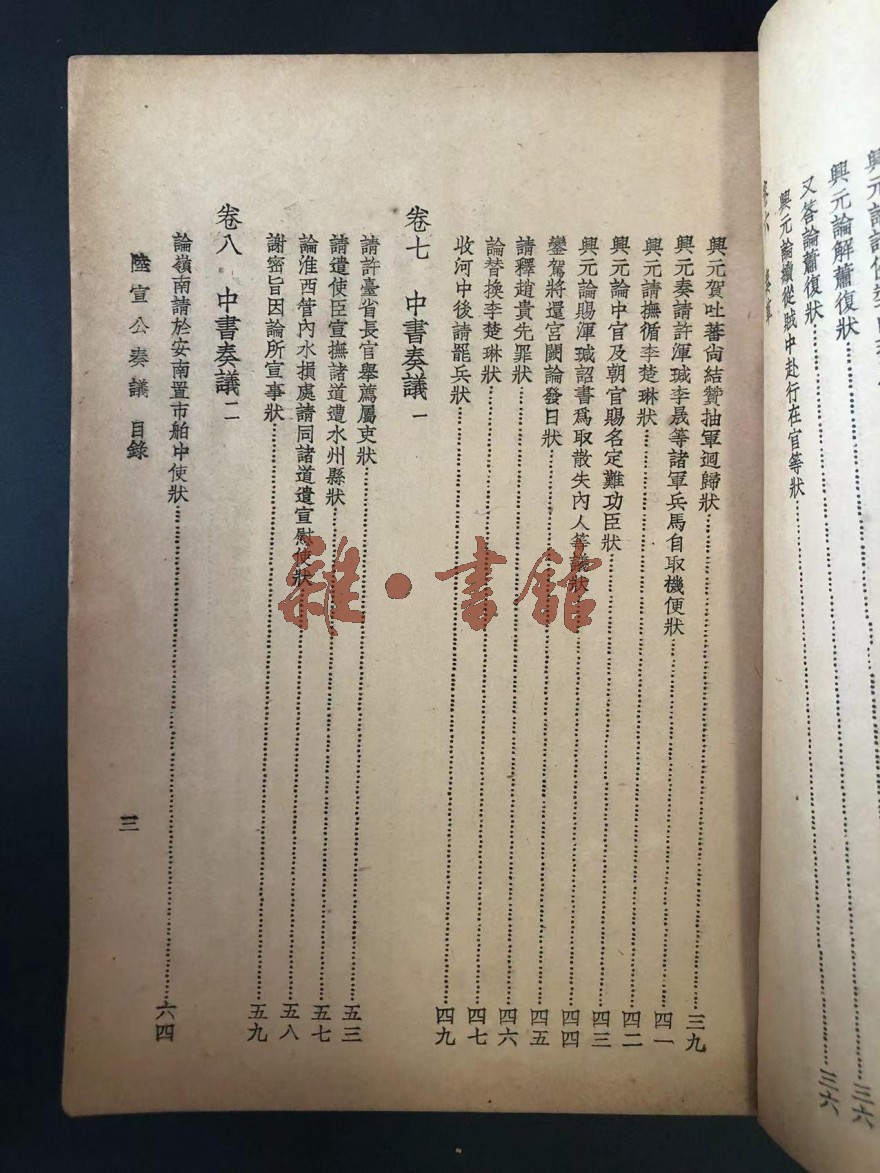 興元論解蕭復狀……三六
又答論蕭復狀……三六
興元論續從賊中赴行在官等狀
興元賀吐蕃尙結贊抽軍迴歸狀……三九
興元奏請許渾瑊李晟等諸軍兵馬自取機便狀……四一
興元請撫循李楚琳狀……四二
興元論中官及朝官賜名定難功臣狀……四三
興元論賜渾瑊詔書爲取散失內人等議狀……四四
鑾駕將還宮闕論發日狀……四五
請釋趙貴先罪狀……四六
論替換李楚琳狀……四七
收河中後請罷兵狀……四九
卷七 中書奏議一
請許臺省長官舉薦屬吏狀……五三
請遣使臣宣撫諸道遭水州縣狀……五七
論淮西管內水損處請同諸道遣宣慰使狀……五八
謝密旨因論所宣事狀……五九
卷八 中書奏議二
論嶺南請於安南置市舶中使狀……六四
陸宣公奏議 目錄
三
雜·書館